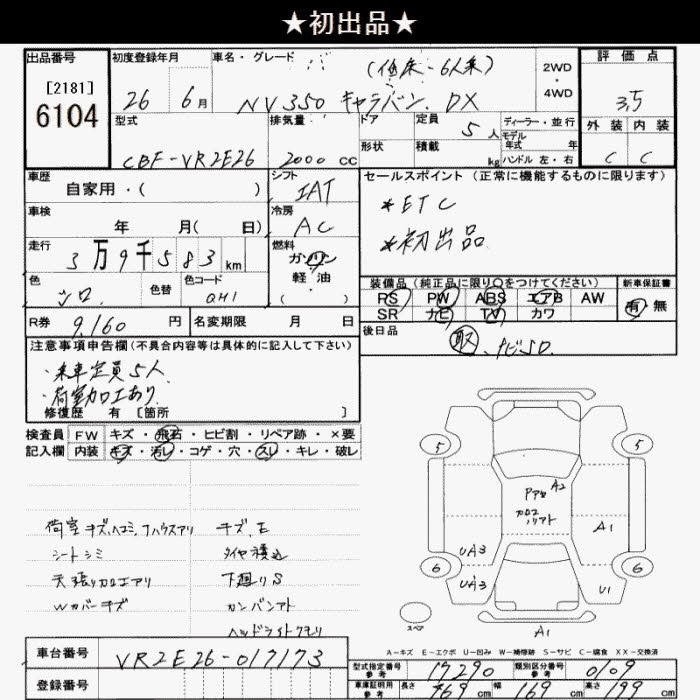 ★初出品★
出品番号
[2181]
6104
初度登録年月
26年 6月
車名・グレード
(低床・6人乗)
NV350 キャラバン DX
2WD
・
4WD
評価点
3,5
外装 内装
C C
型式
CBF-VR2E26
排気量
2000 cc
ドア
形状
定員 5人
積載 kg
ディーラー・並行
モデル年式 年
ハンドル 左・右
車歴
自家用・( )
シフト
IAT
車検
年 月( 日)
冷房
AC
走行
3万9千583km
燃料
ガソリン
軽・油
( )
色
シロ
色替
色コード
QM1
R券
9,160 円
名変期限 月 日
セールスポイント(正常に機能するものに限ります)
*ETC
*初出品
装備品(純正品に限り○をつけてください)
PS PW ABS エアB AW
SR ナビ TV カワ
新車保証書
有・無
後日品
取 ナビSD.
注意事項申告欄(不具合内容等は具体的に記入して下さい)
・乗車定員5人
・荷室加工あり
修復歴 有 [箇所 ]
検査員
記入欄
FW キズ・飛石・ヒビ割・リペア跡・×要
内装 キズ・汚レ・コゲ・穴・スレ・キレ・破レ
荷室キズ、ヘコミ、
シートシミ
天張りカロエアリ
Wカバーキズ
キズ、E
タイヤ積込
下廻りS
カンバンアト
ヘッドライトクモリ
5 5
PアセA2
A1
UA3
6 6
UA3
U1
スペア
A1
A-キズ E-エクボ U-凹み W-補修跡 S-サビ C-腐食 XX-交換済
車台番号
VR2E26-017173
登録番号
型式指定番号
参考
17290
類別区分番号
参考
0109
車庫証明用
参考
長さ 469 cm
幅 169 cm
高さ 199 cm